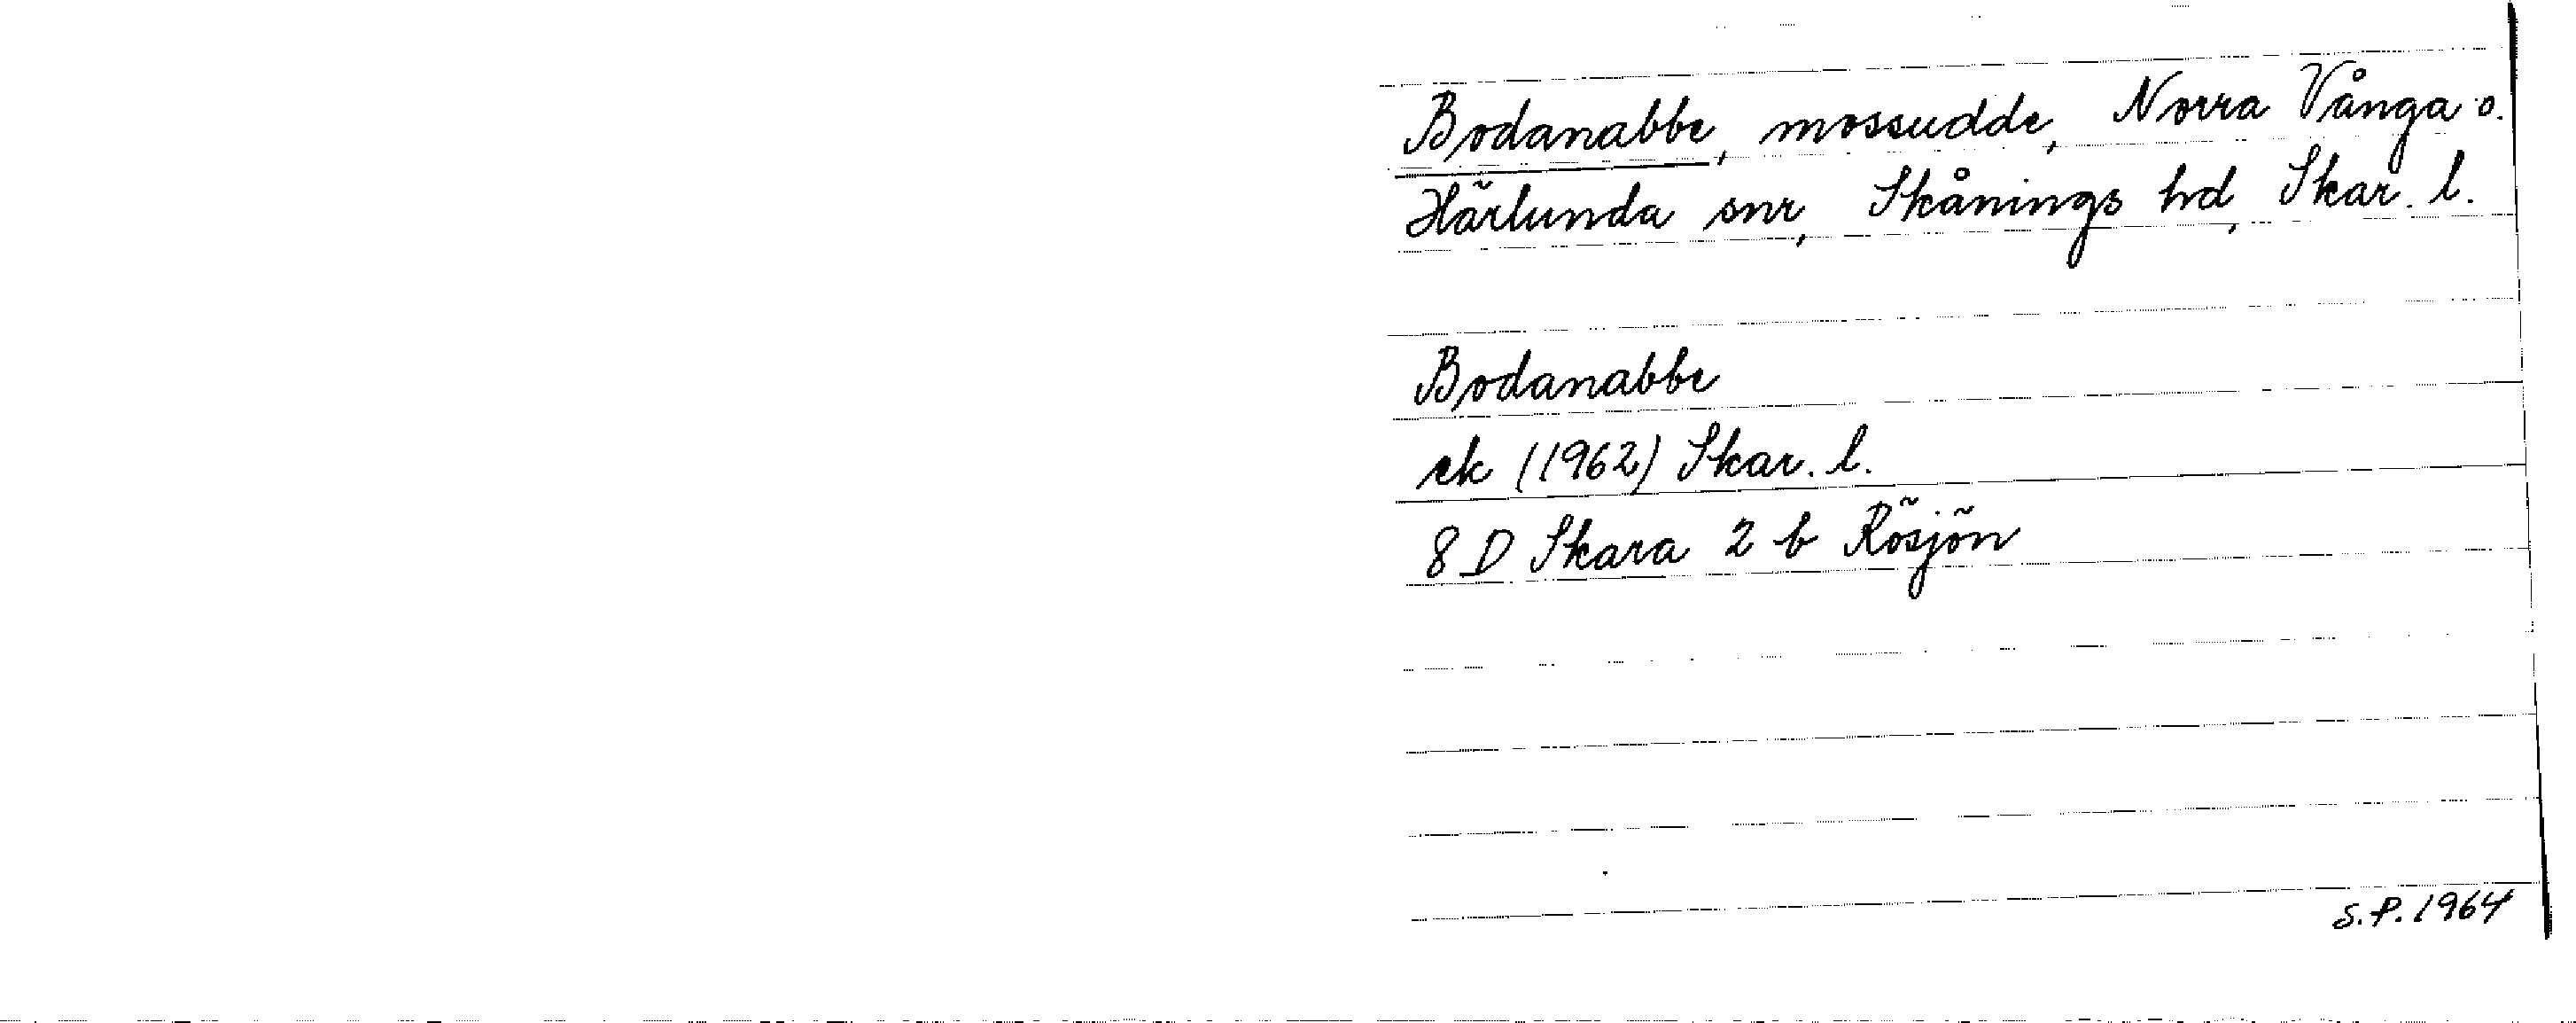 Bodanabbe, mossudde, Norra Vånga o.
Härlunda snr, Skånings hd, Skar. l.
Bodanabbe
ek (1962) Skar. l.
8 D Skara 2 b Rösjön
S.P. 1964